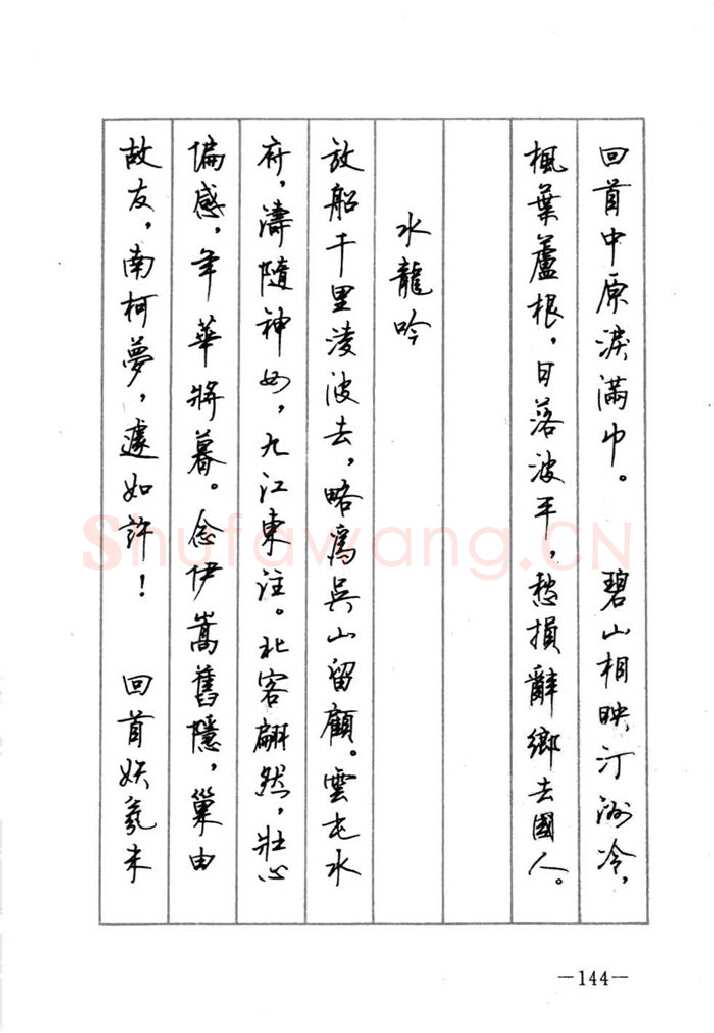 回首中原淚滿巾。 碧山相映汀洲冷，
楓葉蘆根，日落波平，愁損辭鄉去國人。
水龍吟
放船千里淩波去，略爲吳山留顧。雲屯水
府，濤隨神女，九江東注。北客翩然，壯心
偏感，年華將暮。念伊嵩舊隱，巢由
故友，南柯夢，遽如許！ 回首妖氛未
—144—
Shufawang.CN